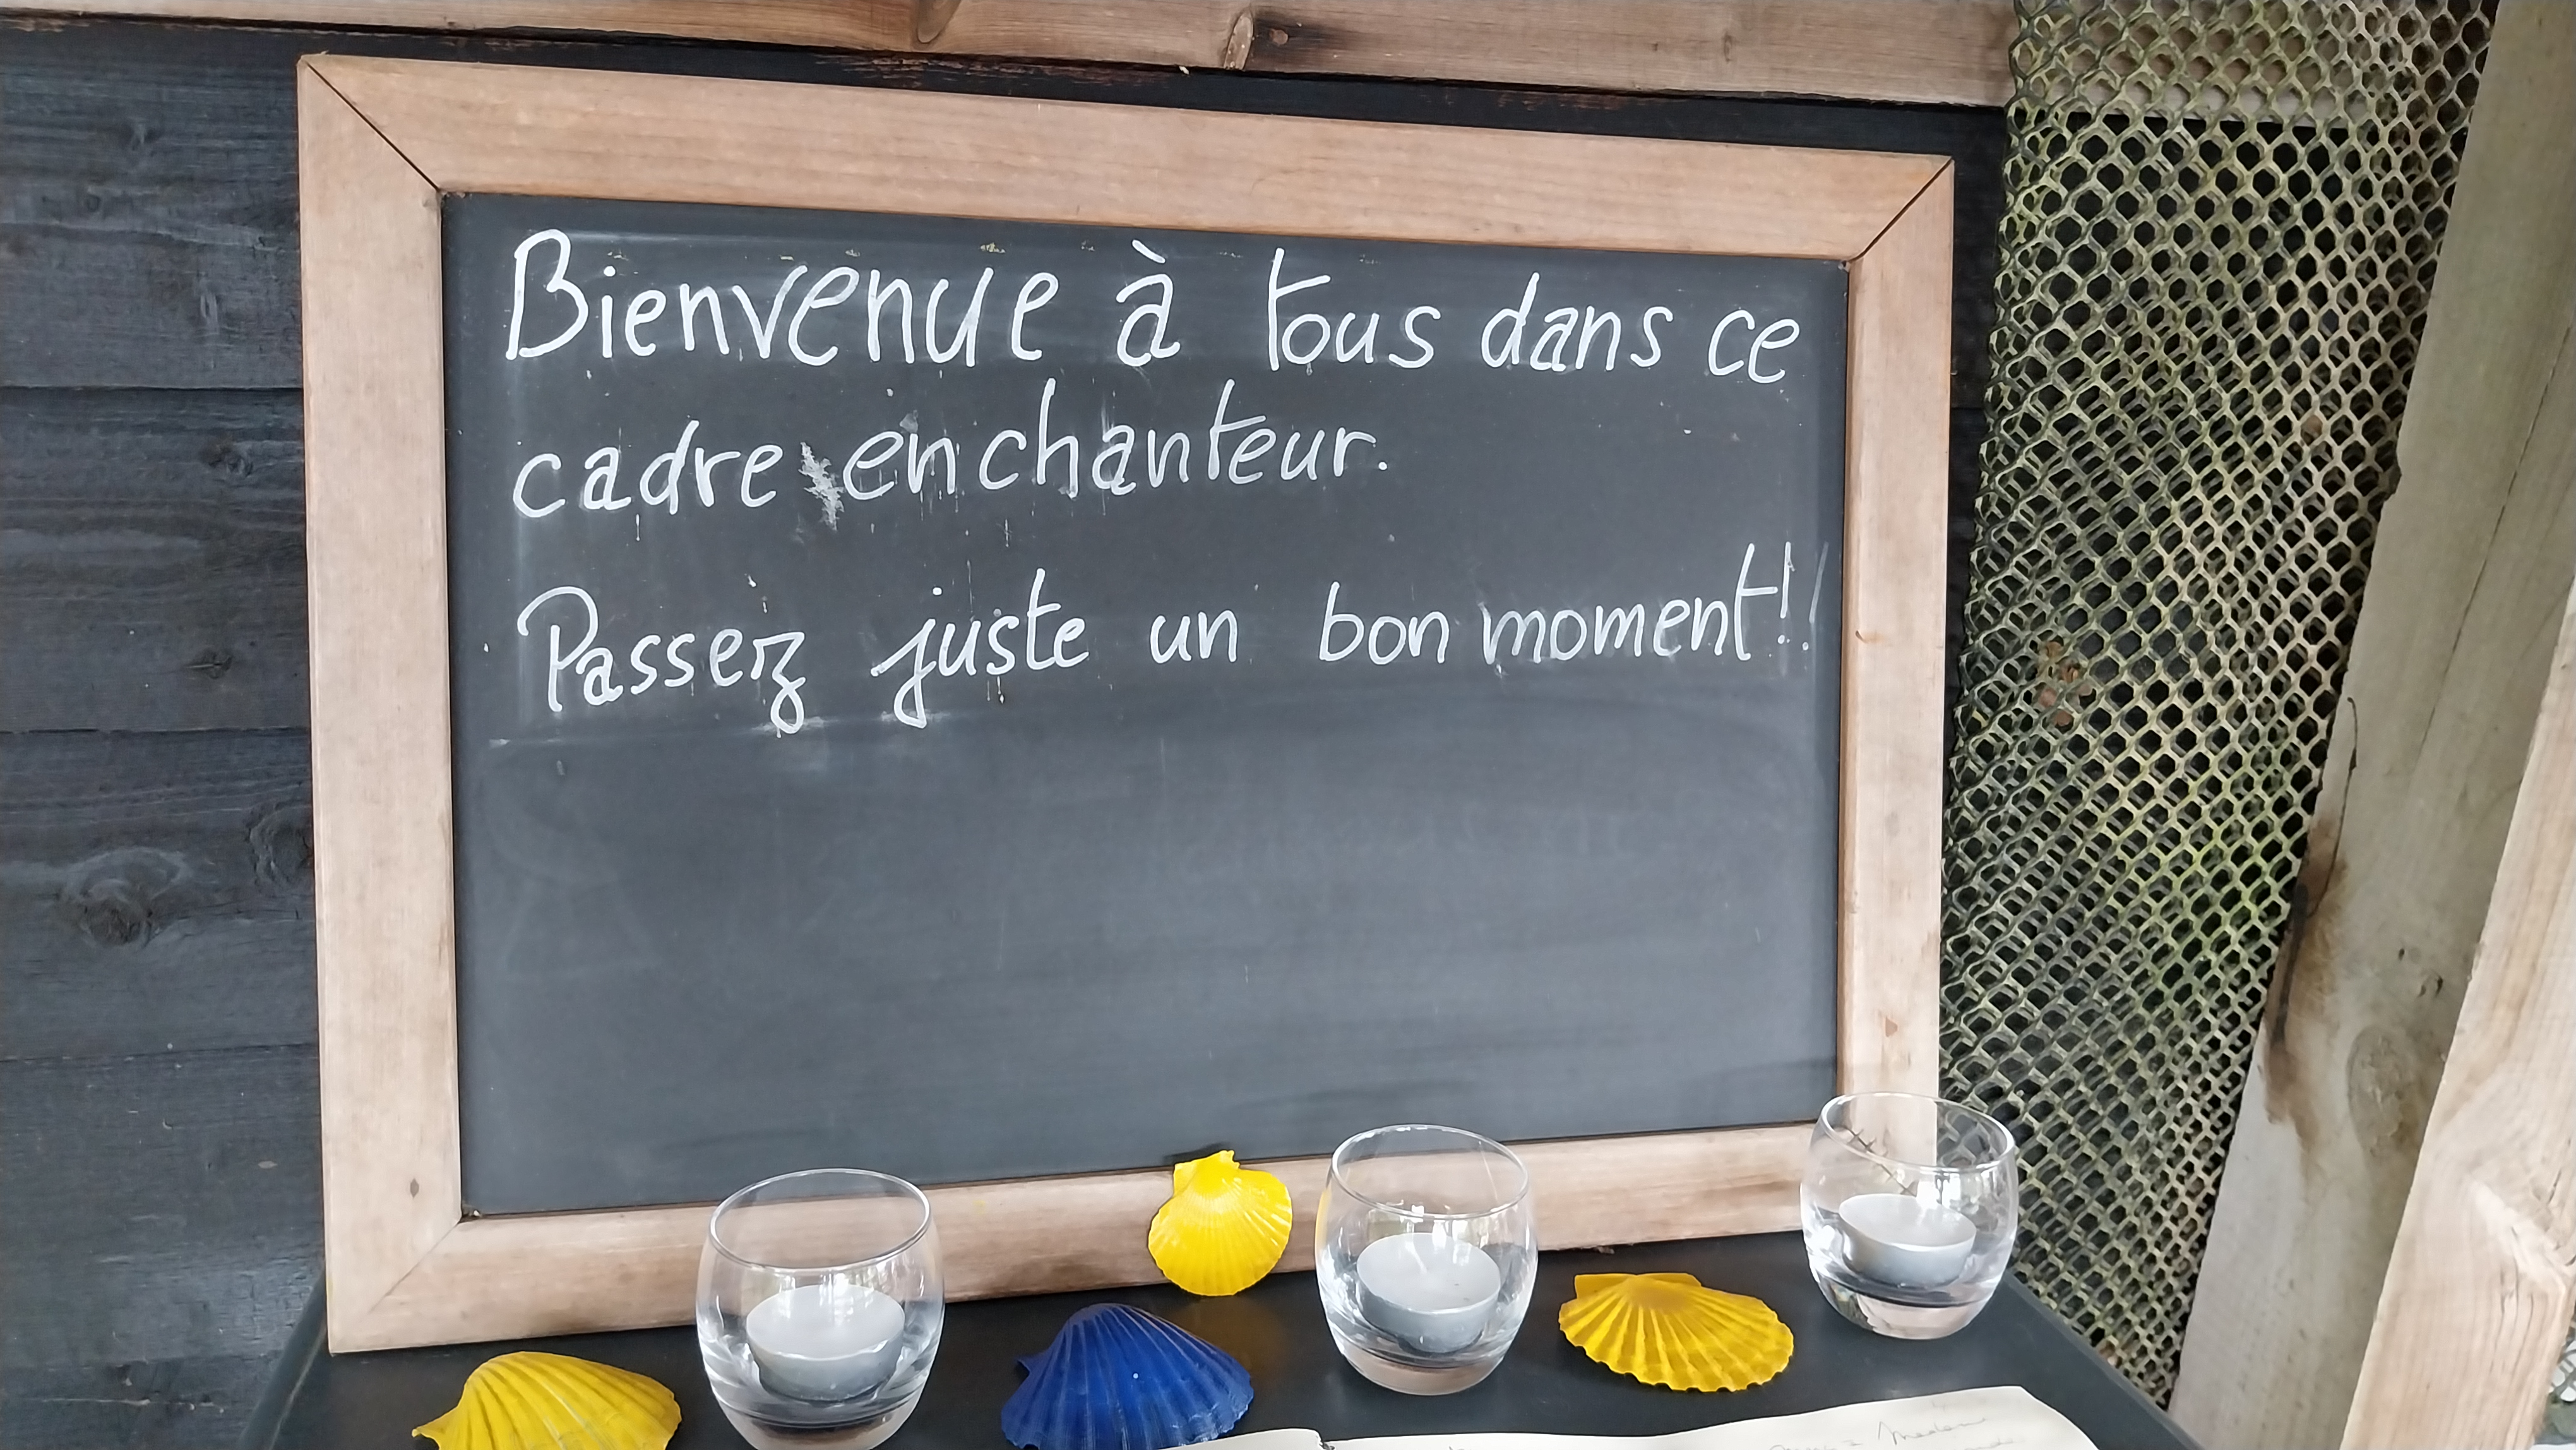 Bienvenue à tous dans ce
cadre enchanteur.
Passez juste un bon moment!!